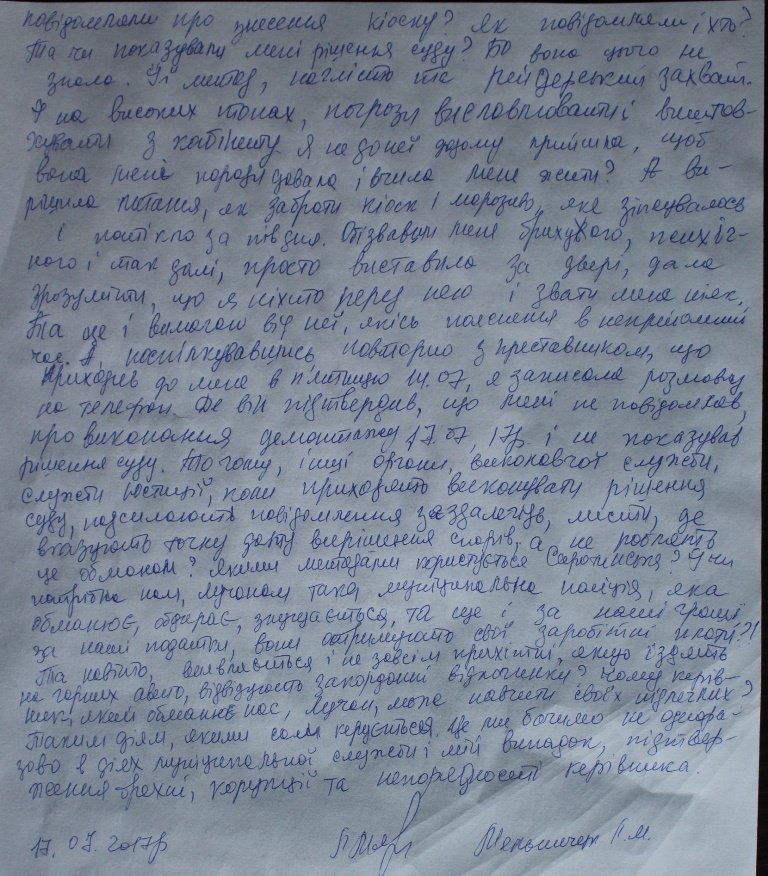 повідомляли про знесення кіоску? Як повідомляли, і хто?
Та чи показували мені рішення суду? Бо вона цього не
знала. Її метод, наглістю те рейдерський захват.
І на високих тонах, погрози висловлювати і виштов-
хувати з кабінету. Я не до неї додому прийшла, щоб
вона мене і вчила мене жити? А ви-
рішила питання, як забрати кіоск і морозиво, яке зіпсувалось
і потікло за півдня. Обізвавши мене брихухого, психіч-
ного і так далі, просто виставила за двері, дала
зрозуміти, що я ніхто перед нею і звати мене ніяк.
Та ще і вимагаю від неї, якісь пояснення в неприйомний
час. А, поспілкувавшись повторно з преставником, що
приходив до мене в п'ятницю 14.07, я записала розмову
на телефон. Де він підтвердив, що мені не повідомляв,
про виконання демонтажу 17.07, 17р. і не показував
рішення суду. По чому, інші органи, виконавчої служби,
служби юстиції, коли приходять виконувати рішення
суду, надсилають повідомлення заздалегідь, листи, де
вказують точну дату вирішення спорів, а не роблять
це обманом? Якими методами користується Сиротинська? Чи
потрібна нам, лучанам така муніціпальна поліція, яка
обманює, обдирає, знущається, та ще і за наші гроші
за наші податки, вони отримують свої заробітні плати?!
Та навіть, виявляється і не зовсім прихітні, якщо їздять
на гарних авто, відвідують закордонні відпочинки? Чому керів-
ник, який обманює нас, лучан, може навчити своїх підлеглих?
Таким діям, якими сама керується. Це ми бачимо не однора-
зово в діях муніціпальної служби і мій випадок, підтвер-
ження брехні, корупції та непорядності керівника.
17.07.2017р П.М.